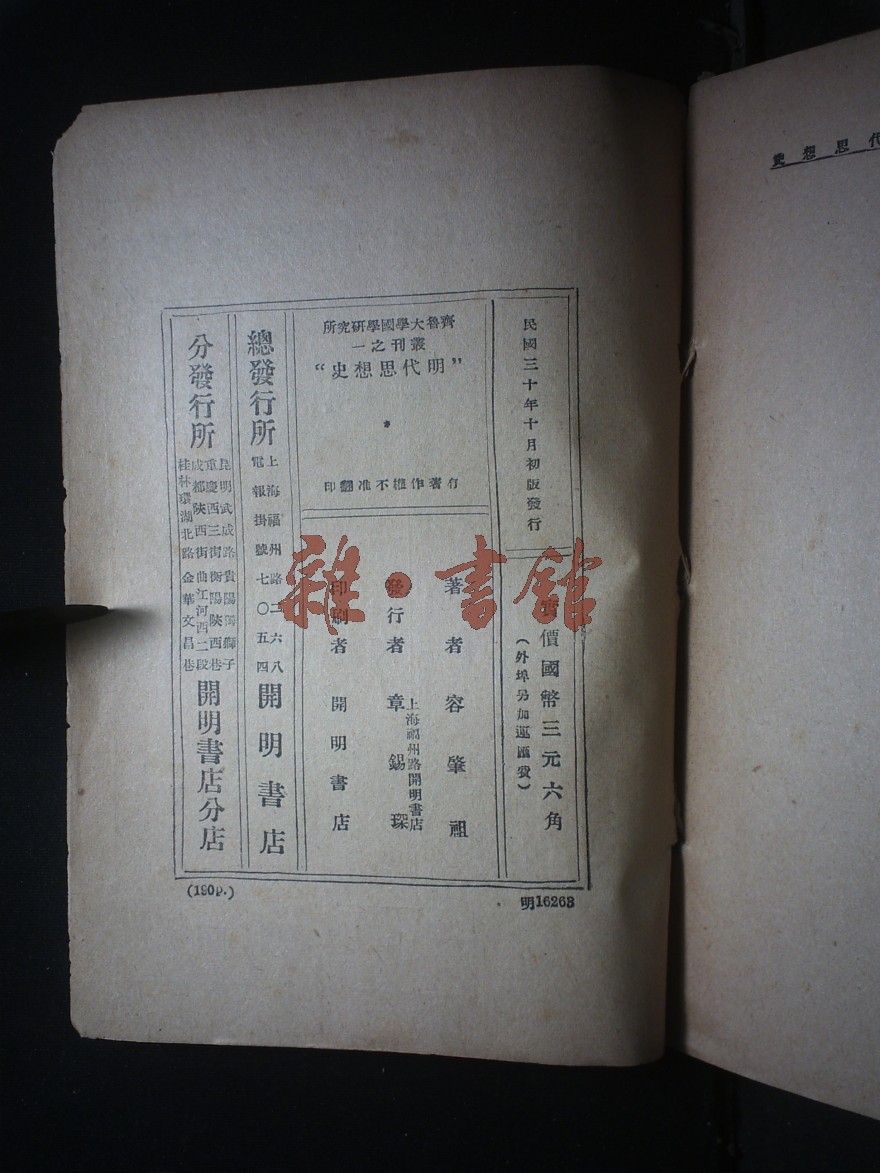 民國三十年十月初版發行
實價國幣三元六角
(外埠另加運匯費)
齊魯大學國學研究所
叢刊之一
“明代思想史”
有著作權不准翻印
著者 容肇祖
發行者 章錫琛
上海福州路開明書店
印刷者 開明書店
總發行所
上海福州路二六八
電報掛號七〇五四
開明書店
分發行所
昆明武成路 貴陽 獅子
重慶西三街 衡陽陝西巷
成都陝西街 曲江河西二段
桂林環湖北路 金華文昌巷
開明書店分店
(190p.)
明16263
代思想史
雜·書館